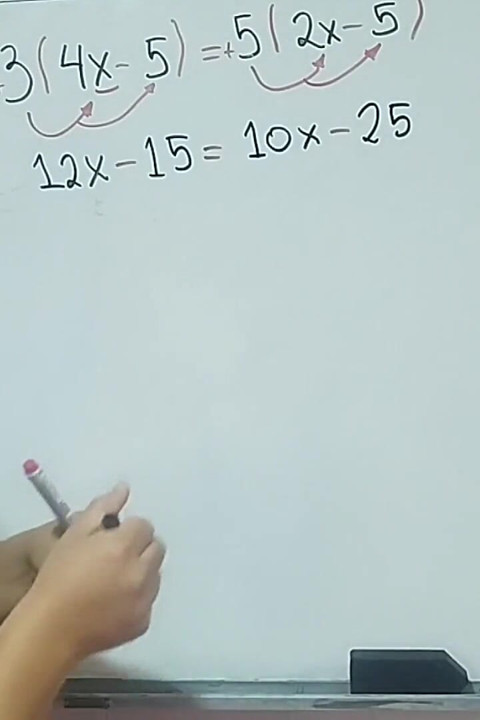 3(4x-5)=+5(2x-5)
12x-15=10x-25